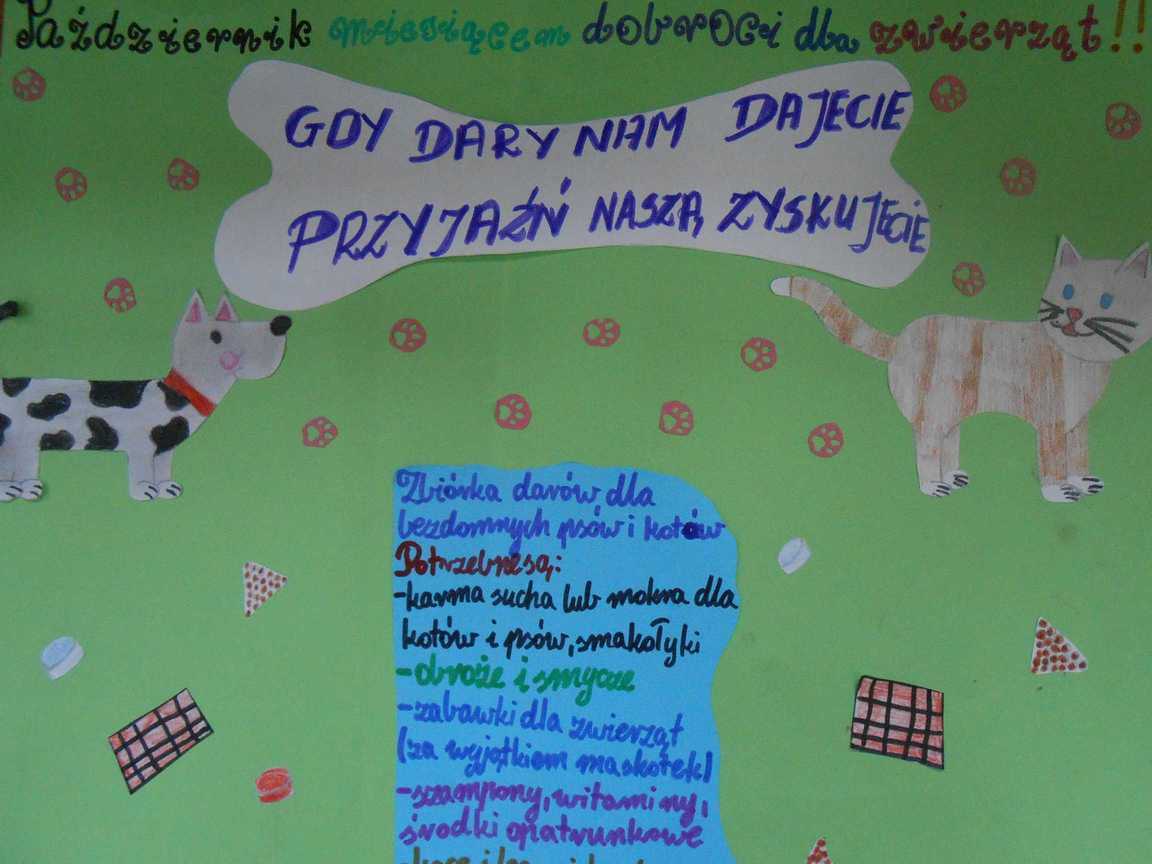 Październik miesiącem dobroci dla zwierząt!!
GDY DARY NAM DAJECIE
PRZYJAŹŃ NASZĄ ZYSKUJECIE
Zbiórka darów dla
bezdomnych psów i kotów
Potrzebne są:
-karma sucha lub mokra dla
kotów i psów, smakołyki
-obroże i smycze
-zabawki dla zwierząt
(za wyjątkiem maskotek)
-szampony, witaminy,
środki opatrunkowe